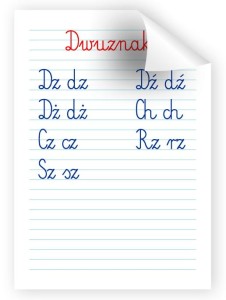 Dwuznak
Dz dz Dź dź
Dż dż Ch ch
Cz cz Rz rz
Sz sz